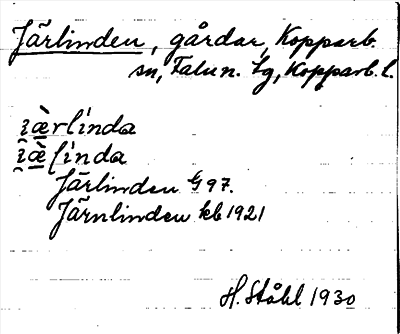 Järlinden, gårdar, Kopparb.
sn, Falun. Lg, Kopparb. l.
i̯æ̀rlínda
i̯æ̀ļínda
Järlinden G 97.
Järnlinden kb 1921
H. Ståhl 1930